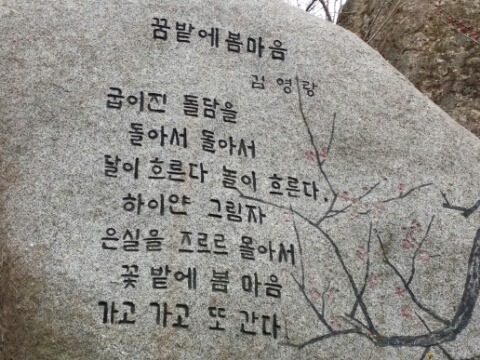 꿈밭에봄마음
김영랑
굽이진 돌담을
돌아서 돌아서
달이 흐른다 놀이 흐른다.
하이얀 그림자
은실을 즈르르 몰아서
꽃 밭에 봄 마음
가고 가고 또 간다